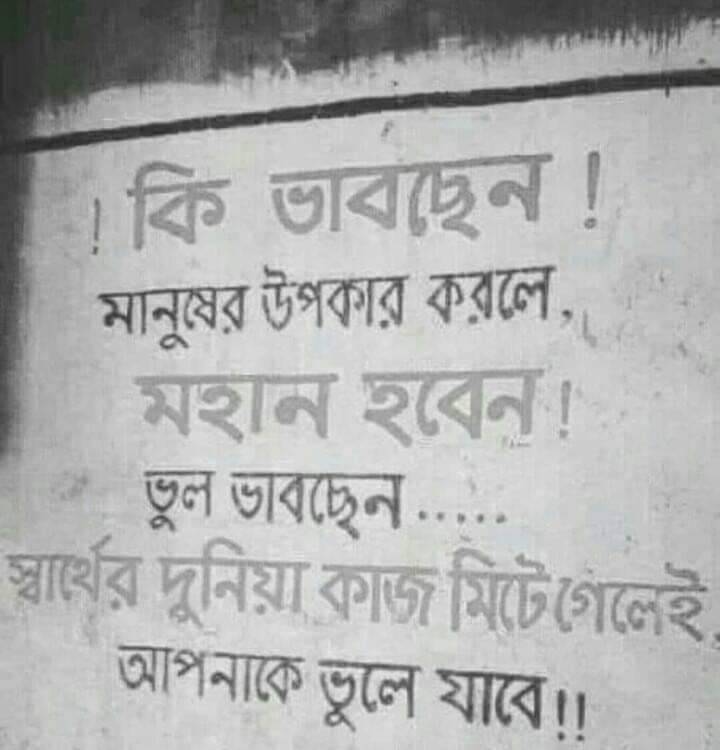 ! কি ভাবছেন !
মানুষের উপকার করলে,
মহান হবেন !
ভুল ভাবছেন .....
স্বার্থের দুনিয়া কাজ মিটে গেলেই,
আপনাকে ভুলে যাবে !!